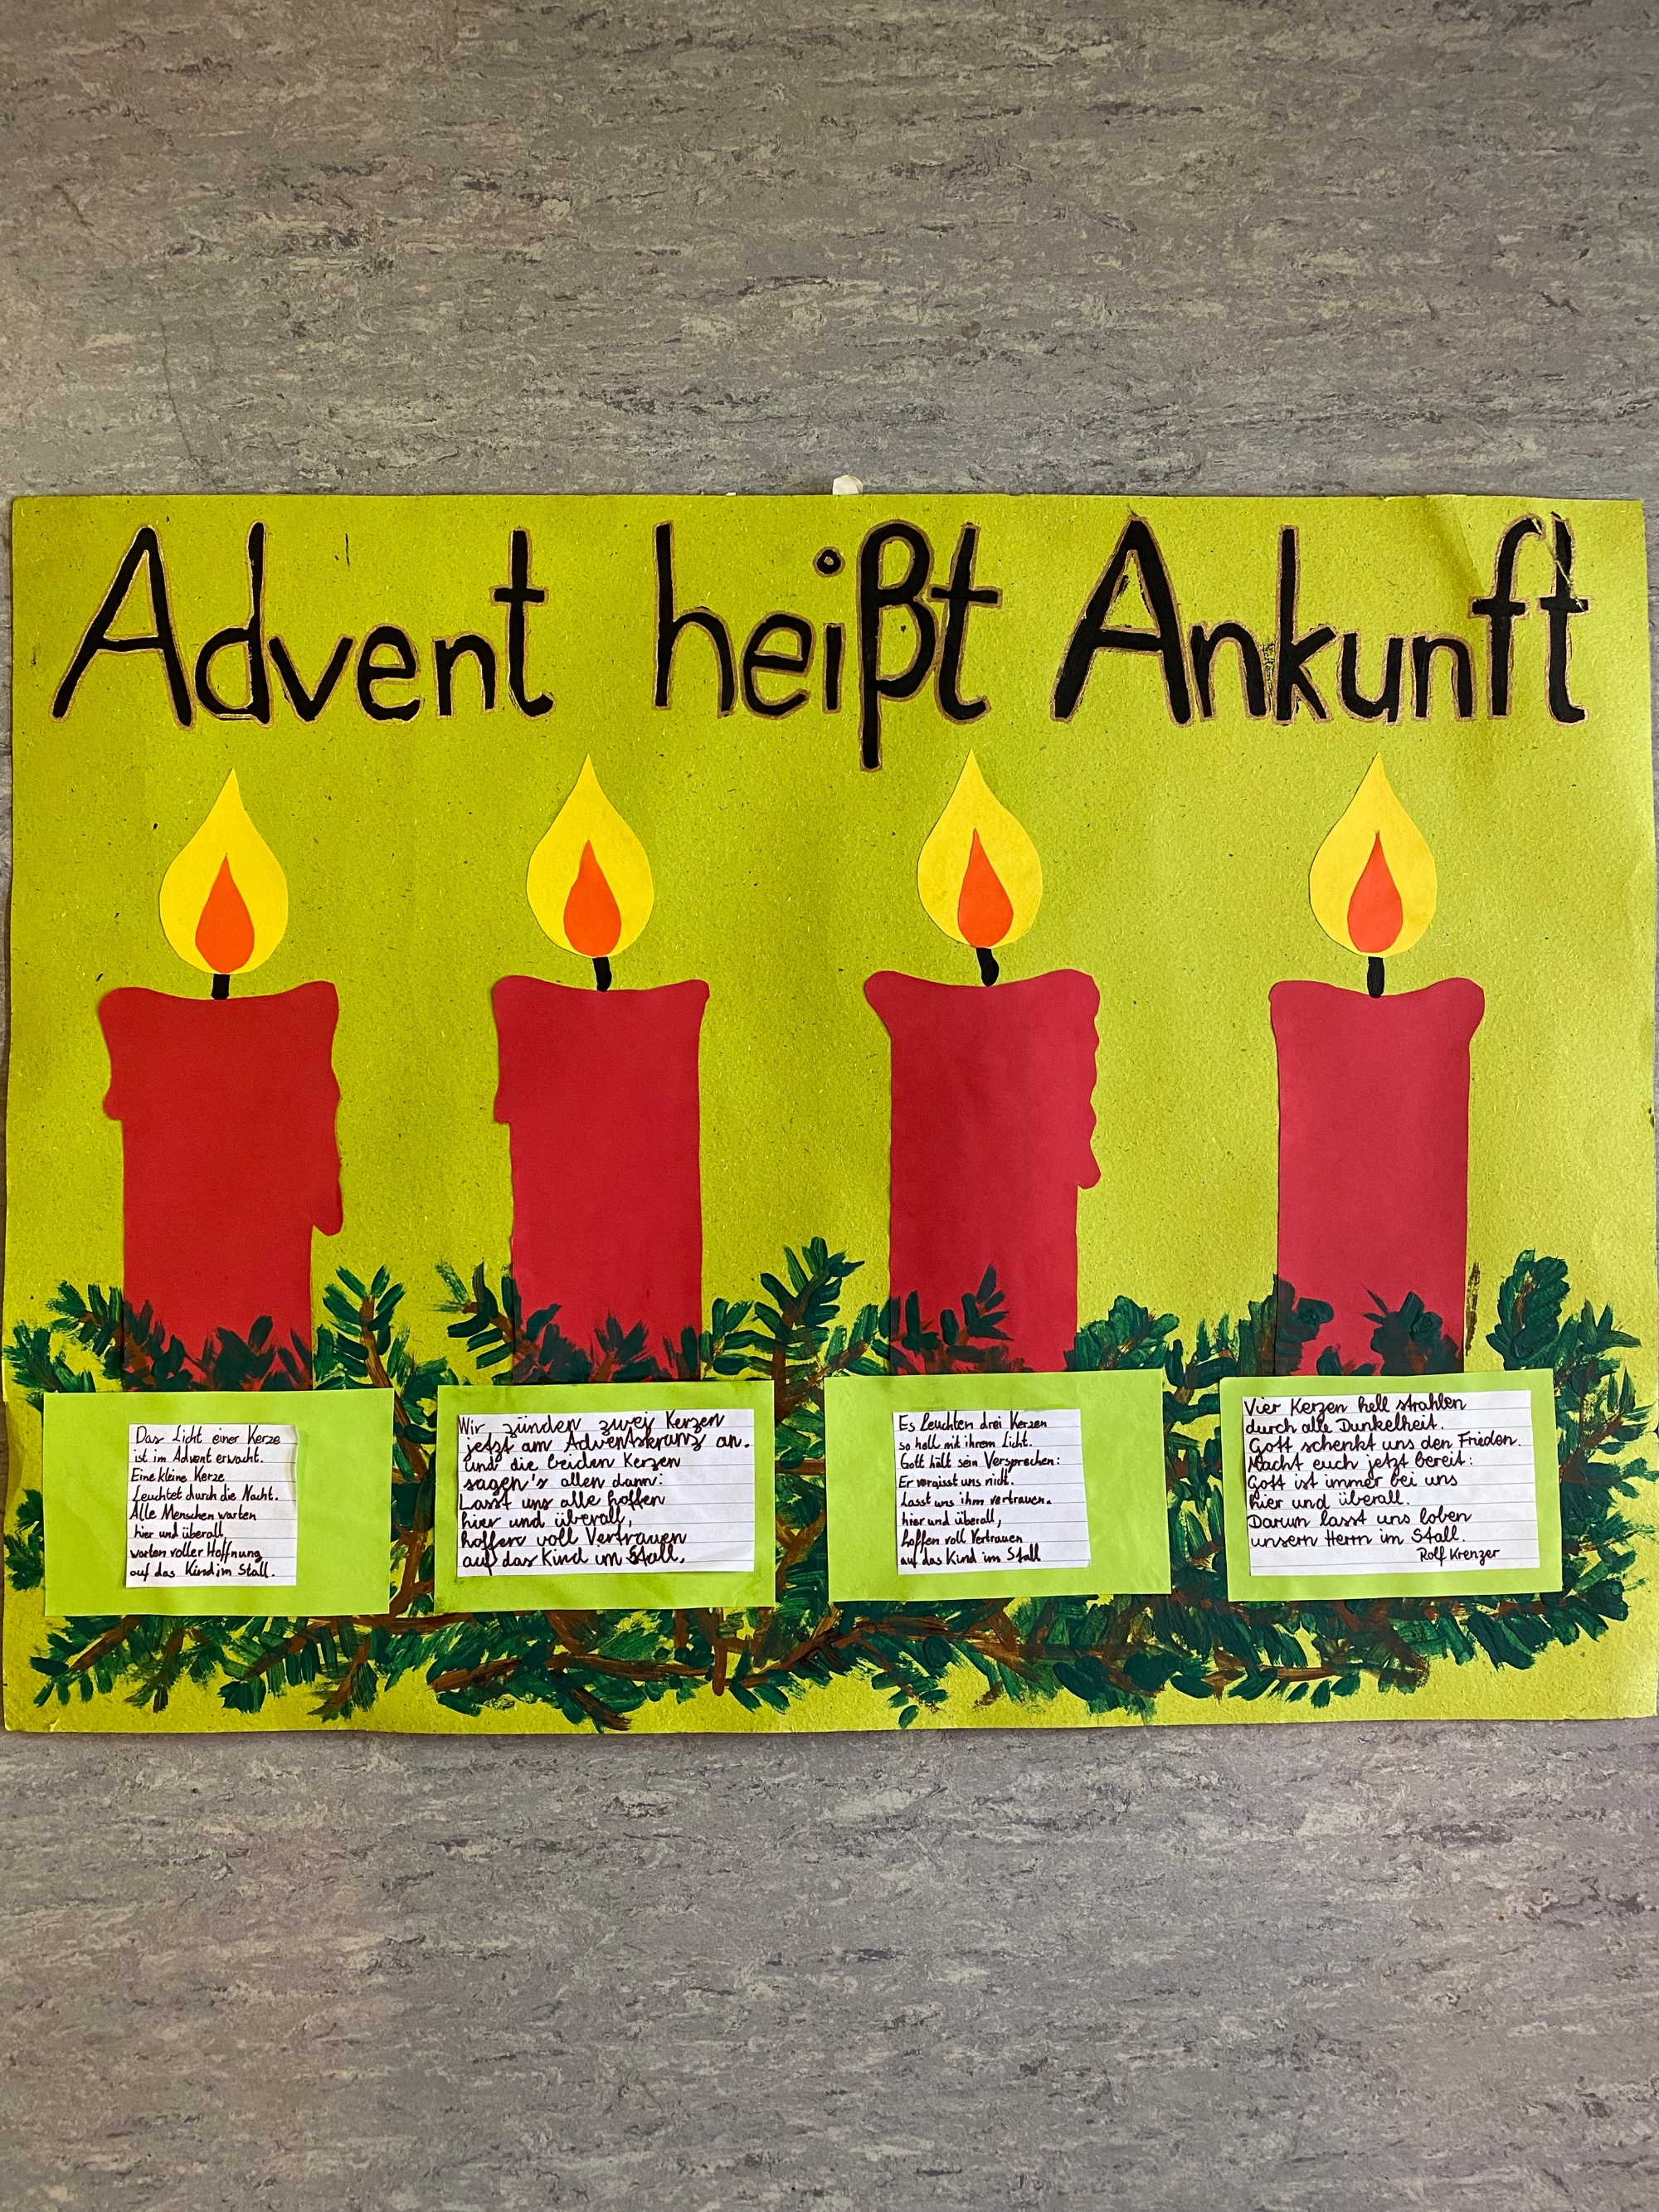 Advent heißt Ankunft
Das Licht einer Kerze
ist im Advent erwacht.
Eine kleine Kerze
Leuchtet durch die Nacht.
Alle Menschen warten
hier und überall,
warten voller Hoffnung
auf das Kind im Stall.
Wir zünden zwei Kerzen
jetzt am Adventskranz an.
und die beiden Kerzen
sagen's allen dann:
Lasst uns alle hoffen
hier und überall,
hoffen voll Vertrauen
auf das Kind im Stall.
Es Leuchten drei Kerzen
so hell mit ihrem Licht.
Gott hält sein Versprechen:
Er vergisst uns nicht.
Lasst uns ihm vertrauen.
hier und überall,
hoffen voll Vertrauen
auf das Kind im Stall
Vier Kerzen hell strahlen
durch alle Dunkelheit.
Gott schenkt uns den Frieden.
Macht euch jetzt bereit:
Gott ist immer bei uns
hier und überall.
Darum lasst uns loben
unsern Herrn im Stall.
Rolf Krenzer